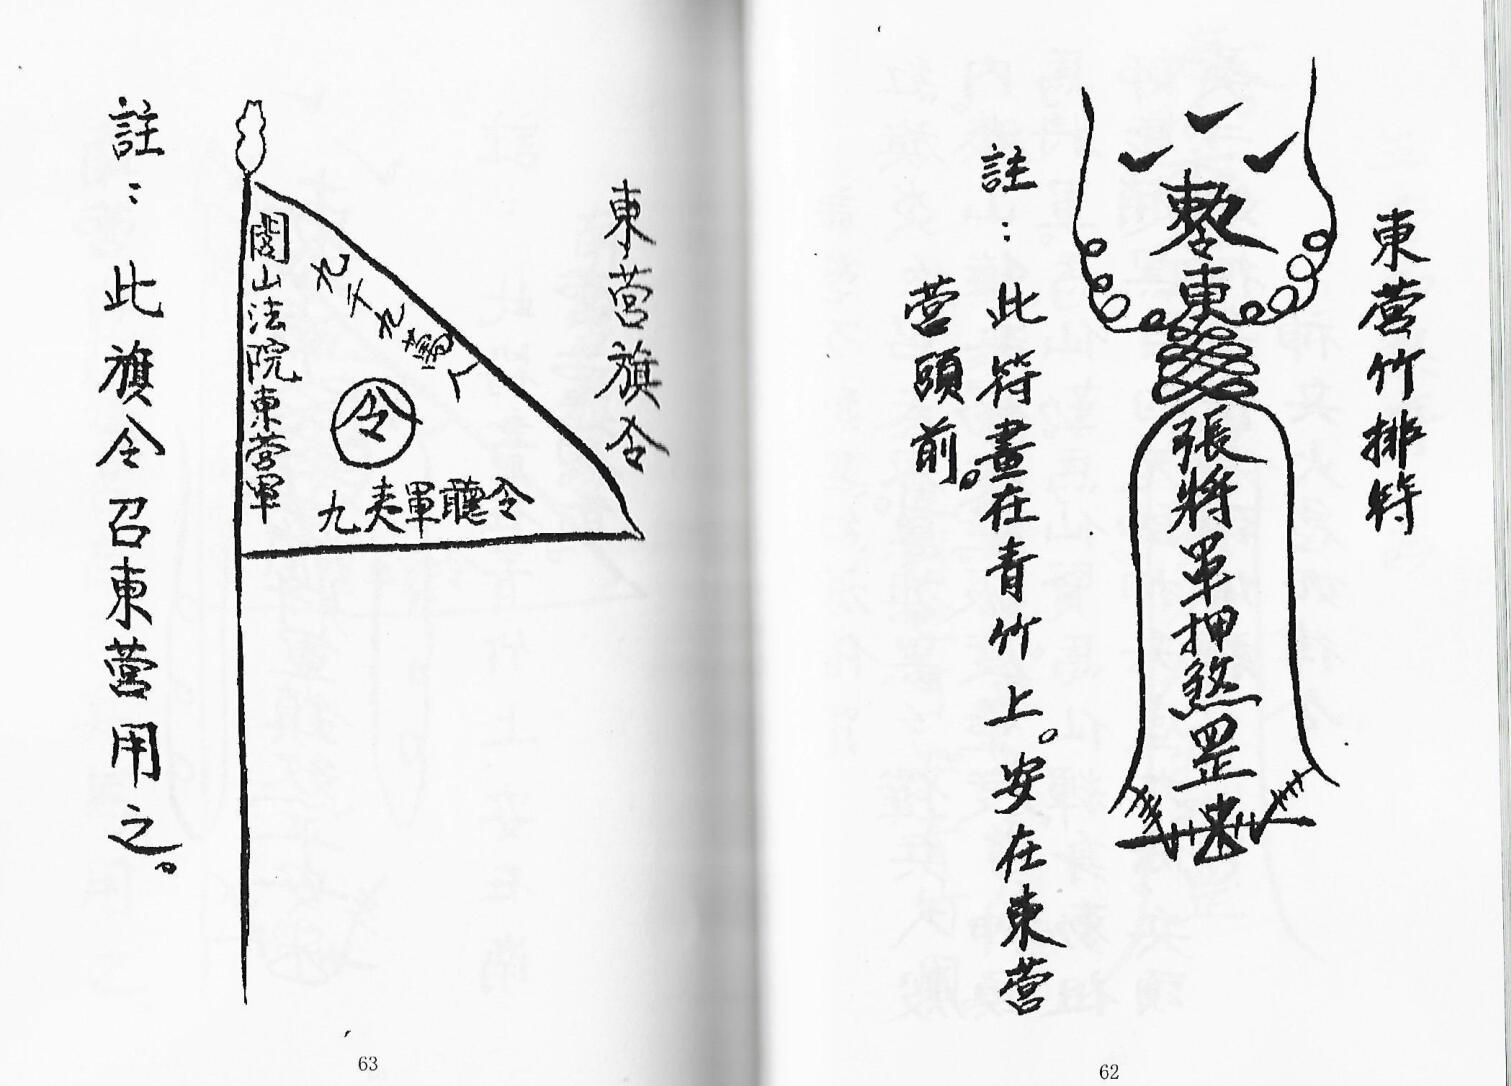 東營竹排符
敕令東
張將軍押煞罡
註：此符畫在青竹上。安在東營
營頭前。
62
東營旗令
九千九萬人
令
九夷軍聽令
閭山法院東營軍
註：此旗令召東營用之。
63